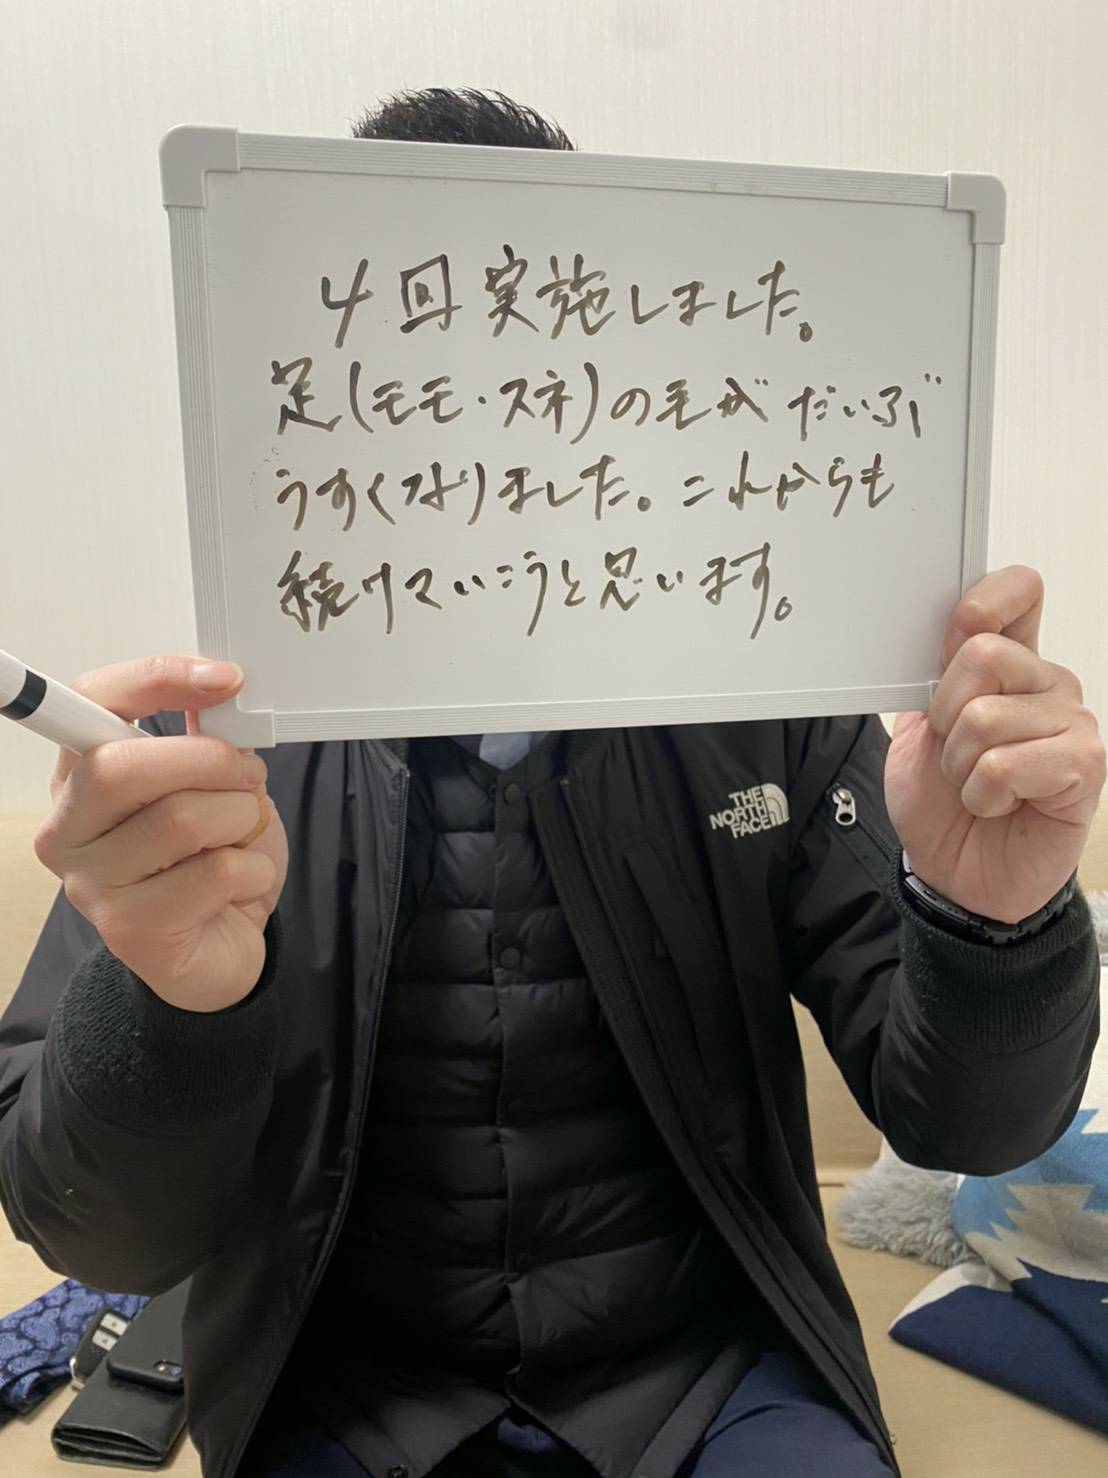 4回実施しました。
足(モモ・スネ)の毛がだいぶ
うすくなりました。これからも
続けていこうと思います。
THE
NORTH
FACE